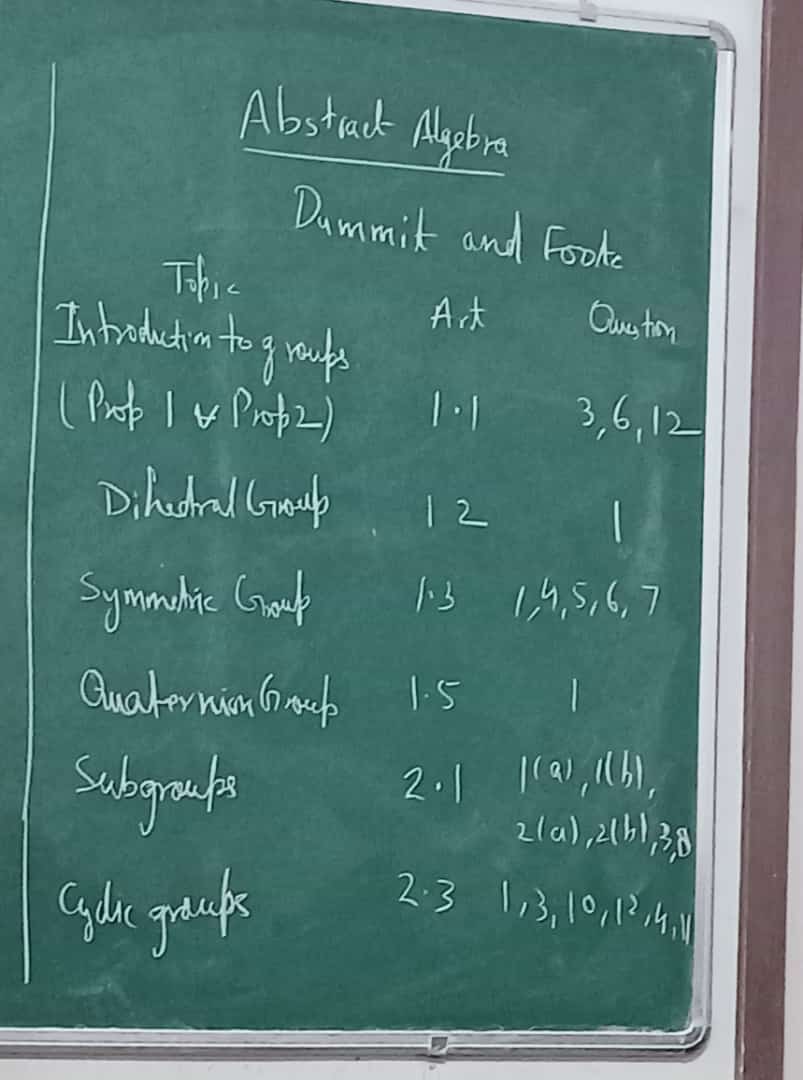 Abstract Algebra
Dummit and Foote
Topic Art Question
Introduction to groups
(Prop 1 & Prop 2) 1.1 3,6,12
Dihedral Group 1 2 1
Symmetric Group 1.3 1,4,5,6,7
Quaternion Group 1.5 1
Subgroups 2.1 1(a), 1(b),
2(a), 2(b), 3,8
Cyclic groups 2.3 1,3,10,12,4,11